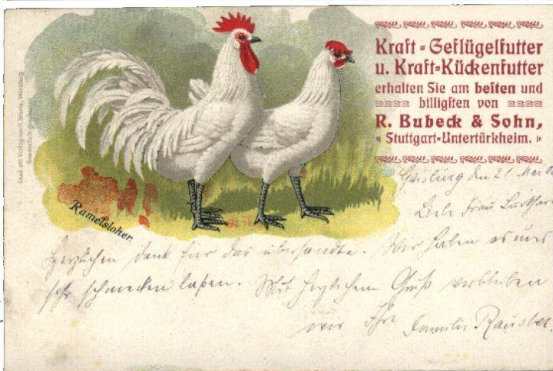 Kraft-Geflügelfutter
u. Kraft-Kückenfutter
erhalten Sie am besten und
billigsten von
R. Bubeck & Sohn,
Stuttgart-Untertürkheim.
Ramelsloher.
den 21. Mai
Frau
Herzlichen Dank für das übersandte. Wir haben es uns
sehr schmecken laßen. Mit herzlichem Gruß verbleiben
wir Ihre Familie